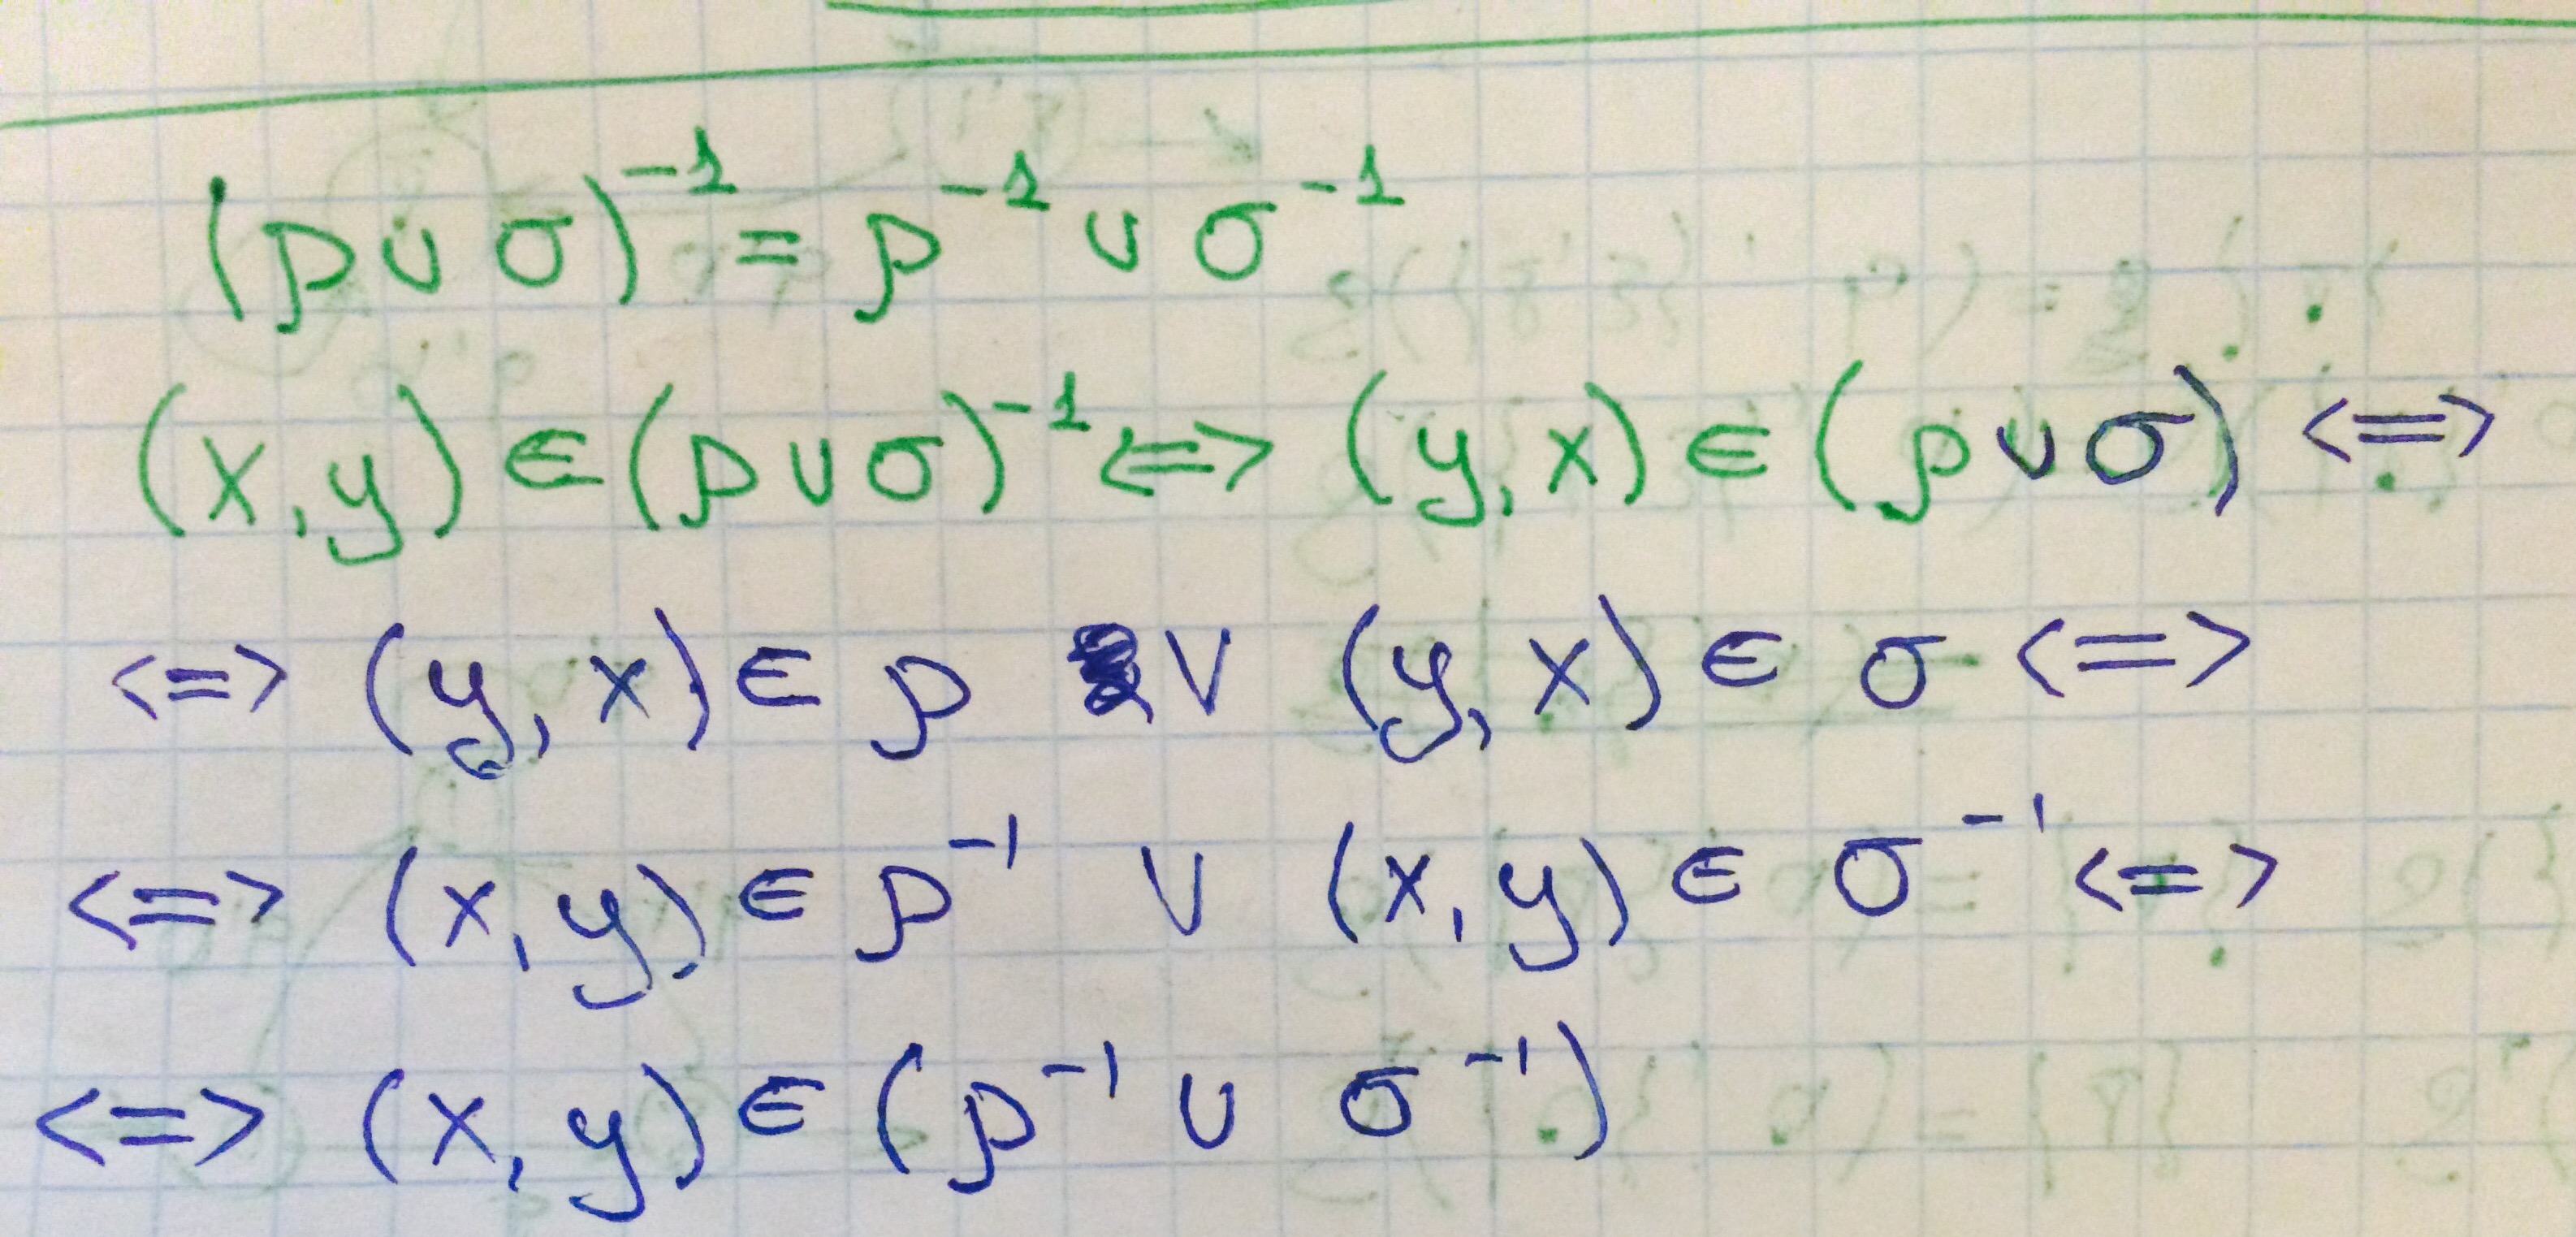 (ρ ∪ σ)⁻¹ = ρ⁻¹ ∪ σ⁻¹
(x, y) ∈ (ρ ∪ σ)⁻¹ <=> (y, x) ∈ (ρ ∪ σ) <=>
<=> (y, x) ∈ ρ ∨ (y, x) ∈ σ <=>
<=> (x, y) ∈ ρ⁻¹ ∨ (x, y) ∈ σ⁻¹ <=>
<=> (x, y) ∈ (ρ⁻¹ ∪ σ⁻¹)